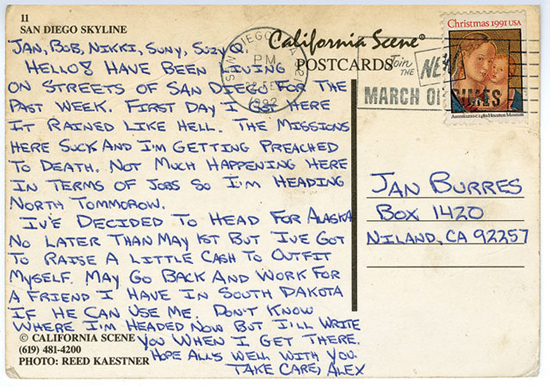 11
SAN DIEGO SKYLINE
JAN, BOB, NIKKI, SUNY, SUZY Q.
HELLO! HAVE BEEN LIVING
ON STREETS OF SAN DIEGO FOR THE
PAST WEEK. FIRST DAY I GOT HERE
IT RAINED LIKE HELL. THE MISSIONS
HERE SUCK AND I'M GETTING PREACHED
TO DEATH. NOT MUCH HAPPENING HERE
IN TERMS OF JOBS SO I'M HEADING
NORTH TOMMOROW.
IV'E DECIDED TO HEAD FOR ALASKA
NO LATER THAN MAY 1ST BUT I'VE GOT
TO RAISE A LITTLE CASH TO OUTFIT
MYSELF. MAY GO BACK AND WORK FOR
A FRIEND I HAVE IN SOUTH DAKOTA
IF HE CAN USE ME. DON'T KNOW
WHERE I'M HEADED NOW BUT I'LL WRITE
YOU WHEN I GET THERE.
HOPE ALL'S WELL WITH YOU.
TAKE CARE, ALEX
© CALIFORNIA SCENE
(619) 481-4200
PHOTO: REED KAESTNER
California Scene®
POSTCARDS
SAN DIEGO CA
PM
1992
Join
THE
MARCH OF DIMES
Christmas 1991 USA
JAN BURRES
BOX 1420
NILAND, CA 92257